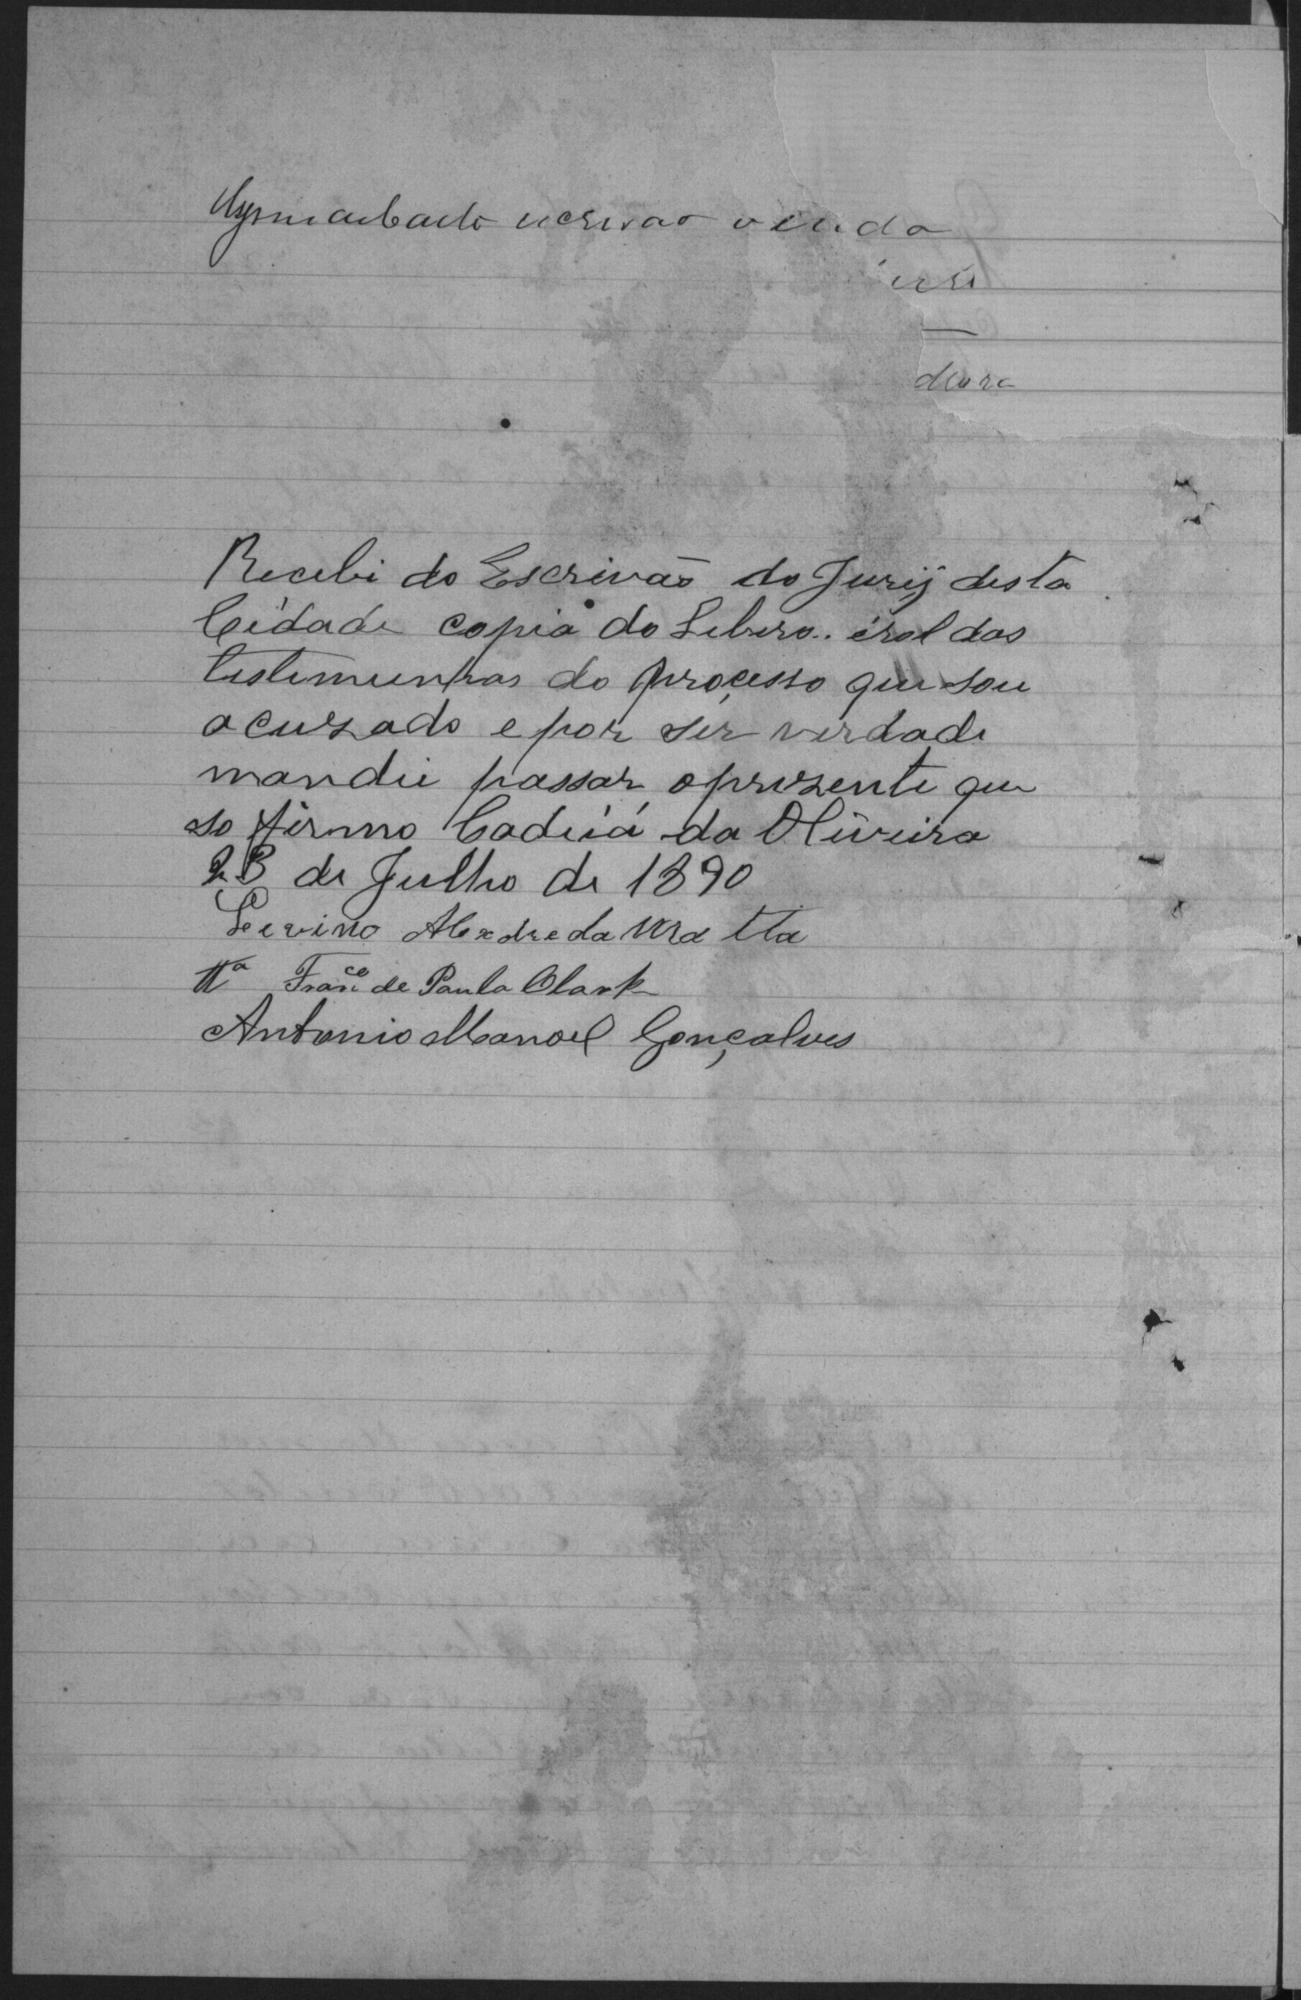 escrivão
Recebi do Escrivão do Jurij desta
Cidade copia do Libero. erol das
testimunhas do processo que sou
acuzado e por ser verdade
mandei passar oprezente que
so firmo Cadeiá da Oliveira
23 de Julho de 1890
Alexdre da Matta
Franco de Paula Clark
Antonio Manoel Gonçalves